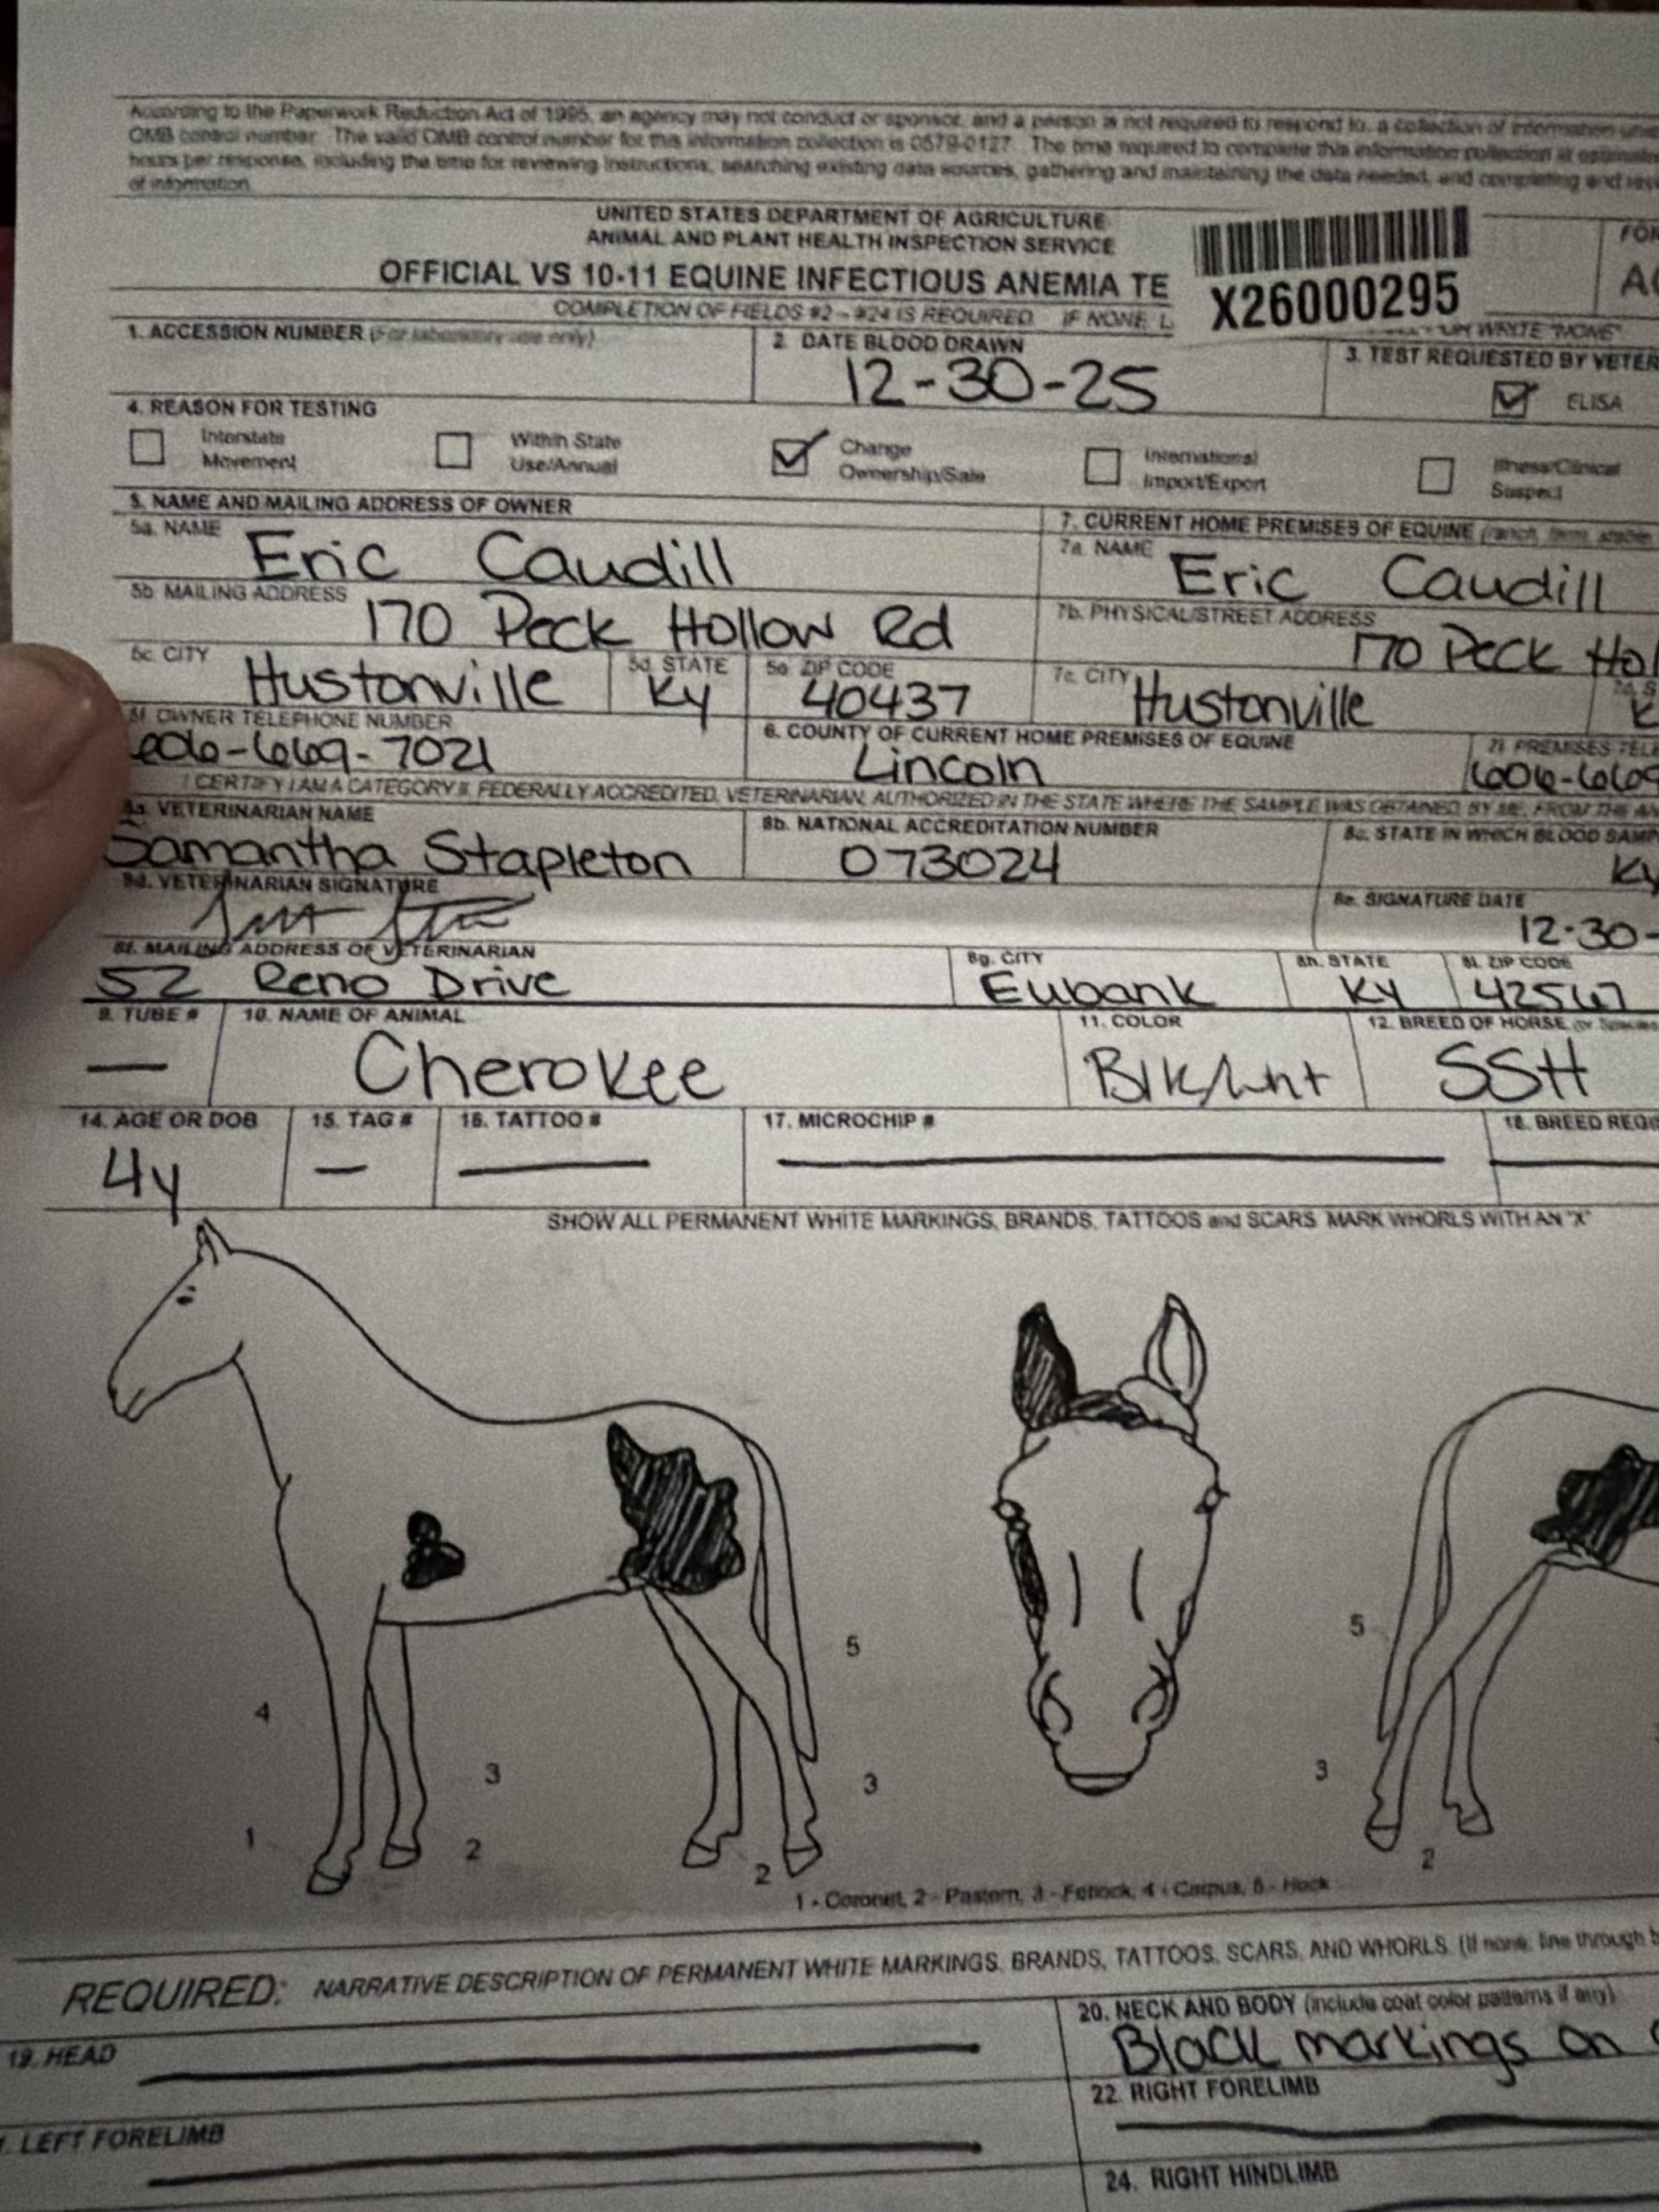 According to the Paperwork Reduction Act of 1995, an agency may not conduct or sponsor, and a person is not required to respond to, a collection of information
OMB control number. The valid OMB control number for this information collection is 0579-0127. The time required to complete this information collection is
hours per response, including the time for reviewing instructions, searching existing data sources, gathering and maintaining the data needed, and completing and
of information.
UNITED STATES DEPARTMENT OF AGRICULTURE
ANIMAL AND PLANT HEALTH INSPECTION SERVICE
OFFICIAL VS 10-11 EQUINE INFECTIOUS ANEMIA TE
X26000295
COMPLETION OF FIELDS #2 - #24 IS REQUIRED. IF NONE, L
OR WRITE "NONE"
1. ACCESSION NUMBER (For laboratory use only)
2. DATE BLOOD DRAWN
12-30-25
3. TEST REQUESTED BY VETER
ELISA
4. REASON FOR TESTING
Interstate Movement
Within State Use/Annual
Change Ownership/Sale
International Import/Export
Illness/Clinical Suspect
5. NAME AND MAILING ADDRESS OF OWNER
7. CURRENT HOME PREMISES OF EQUINE
5a. NAME
Eric Caudill
7a. NAME
Eric Caudill
5b. MAILING ADDRESS
170 Peck Hollow Rd
7b. PHYSICAL/STREET ADDRESS
170 Peck Hol
5c. CITY
Hustonville
5d. STATE
Ky
5e. ZIP CODE
40437
7c. CITY
Hustonville
5f. OWNER TELEPHONE NUMBER
606-669-7021
6. COUNTY OF CURRENT HOME PREMISES OF EQUINE
Lincoln
7f. PREMISES TELE
606-669
I CERTIFY I AM A CATEGORY II, FEDERALLY ACCREDITED, VETERINARIAN, AUTHORIZED IN THE STATE WHERE THE SAMPLE WAS OBTAINED, BY ME, FROM THE AN
8a. VETERINARIAN NAME
Samantha Stapleton
8b. NATIONAL ACCREDITATION NUMBER
073024
8c. STATE IN WHICH BLOOD SAMP
Ky
8d. VETERINARIAN SIGNATURE
8e. SIGNATURE DATE
12-30-
8f. MAILING ADDRESS OF VETERINARIAN
52 Reno Drive
8g. CITY
Eubank
8h. STATE
Ky
8i. ZIP CODE
42567
9. TUBE #
—
10. NAME OF ANIMAL
Cherokee
11. COLOR
Blk/wht
12. BREED OF HORSE
SSH
14. AGE OR DOB
4y
15. TAG #
—
16. TATTOO #
—
17. MICROCHIP #
—
18. BREED REGI
SHOW ALL PERMANENT WHITE MARKINGS, BRANDS, TATTOOS and SCARS. MARK WHORLS WITH AN "X"
5
5
4
3
3
3
1
2
2
2
1 - Coronet, 2 - Pastern, 3 - Fetlock, 4 - Carpus, 5 - Hock
REQUIRED: NARRATIVE DESCRIPTION OF PERMANENT WHITE MARKINGS, BRANDS, TATTOOS, SCARS, AND WHORLS. (If none, line through b
19. HEAD
20. NECK AND BODY (include coat color patterns if any)
Black markings on
. LEFT FORELIMB
22. RIGHT FORELIMB
24. RIGHT HINDLIMB